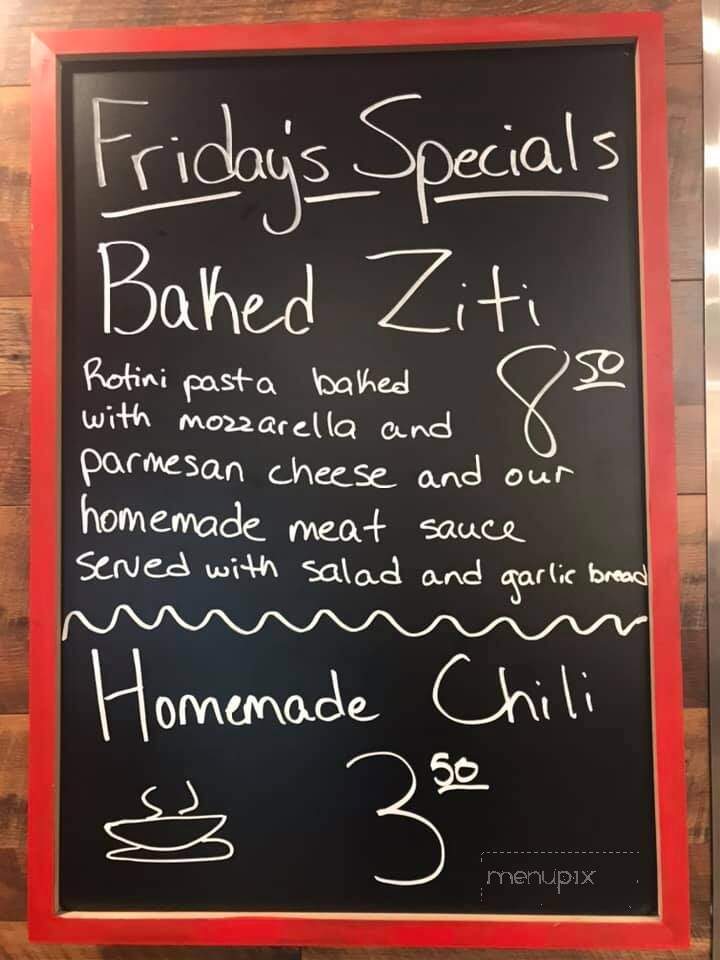 Friday's Specials
Baked Ziti
8 50
Rotini pasta baked
with mozzarella and
parmesan cheese and our
homemade meat sauce
served with salad and garlic bread
Homemade Chili
3 50
menupix